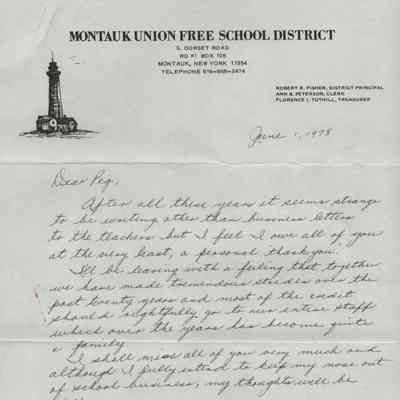 MONTAUK UNION FREE SCHOOL DISTRICT
S. DORSET ROAD
RD #1 BOX 105
MONTAUK, NEW YORK 11954
TELEPHONE 516-668-2474
ROBERT R. FISHER, DISTRICT PRINCIPAL
ANN S. PETERSON, CLERK
FLORENCE I. TUTHILL, TREASURER
June 1, 1978
Dear Peg,
After all these years it seems strange
to be writing other than business letters
to the teachers but I feel I owe all of you
at the very least, a personal "thank you".
I'll be leaving with a feeling that together
we have made tremendous strides over the
past twenty years and most of the credit
should rightfully go to our entire staff
which over the years has become quite
a family.
I shall miss all of you very much and
although I fully intend to keep my nose out
of school business, my thoughts will be